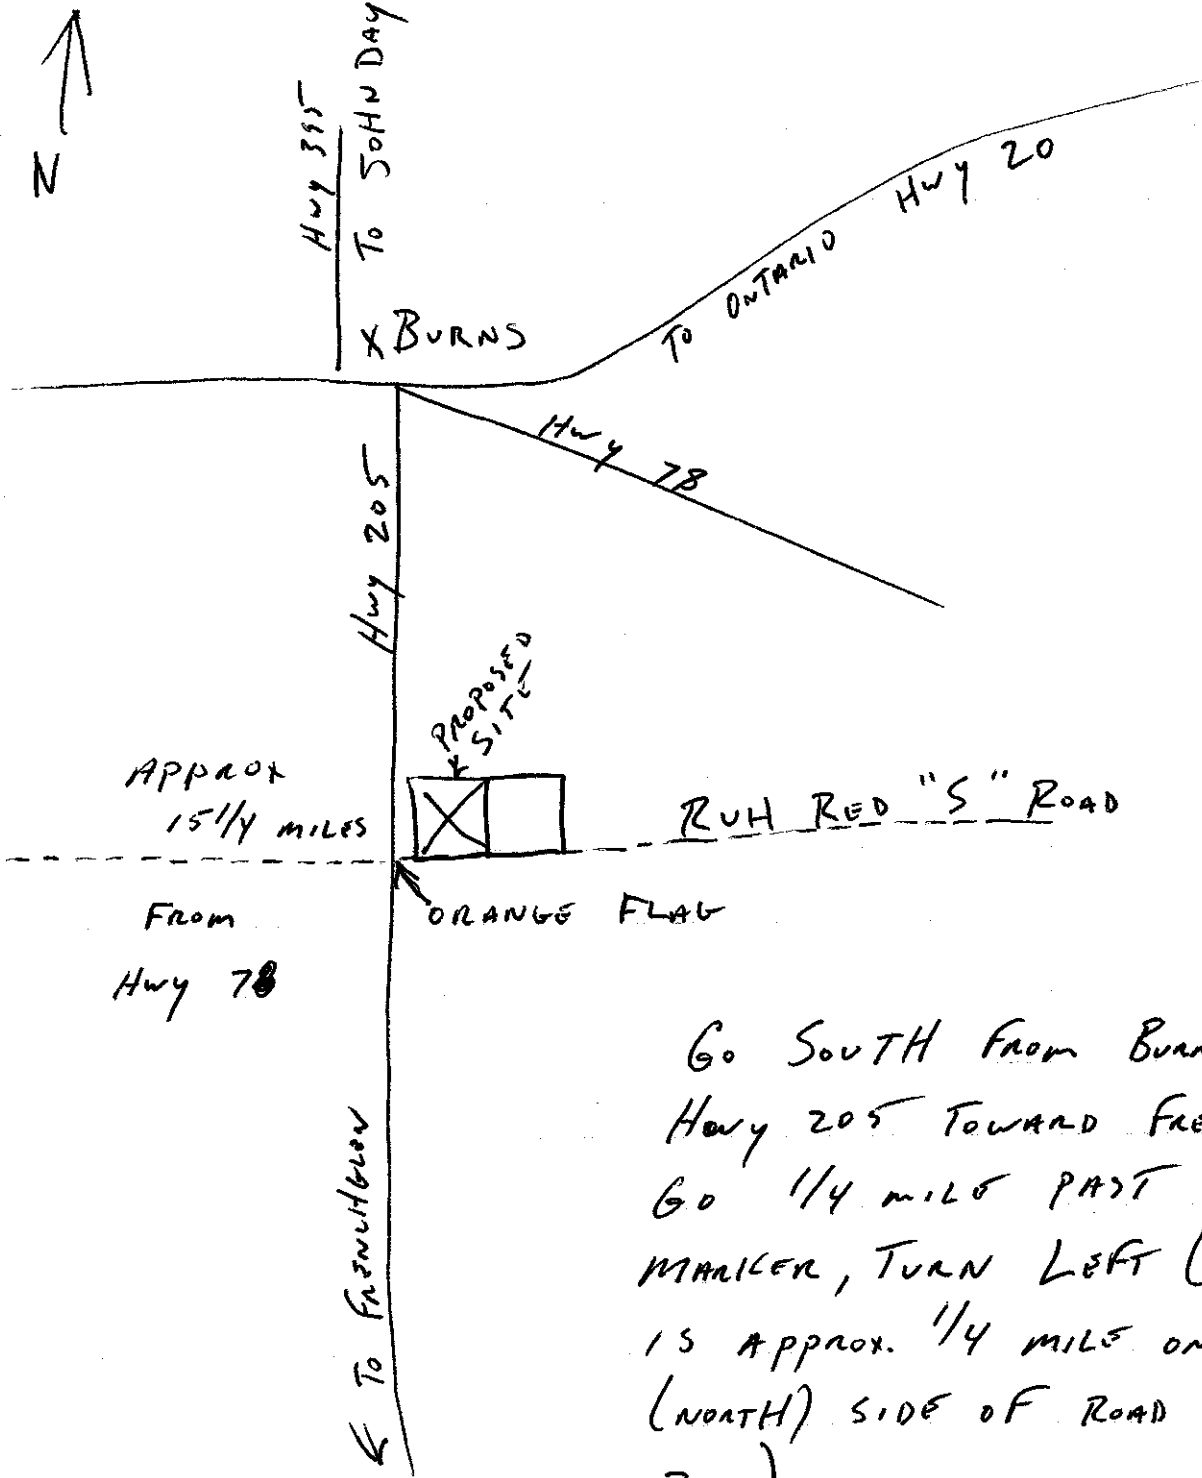 N
Hwy 395
To JOHN DAY
X BURNS
To ONTARIO Hwy 20
Hwy 78
Hwy 205
PROPOSED
SITE
APPROX
15 1/4 MILES
RUH RED "S" ROAD
ORANGE FLAG
FROM
Hwy 78
To FRENCHGLEN
Go SOUTH FROM BURN
Hwy 205 TOWARD FRE
Go 1/4 MILE PAST
MARKER, TURN LEFT (
IS APPROX. 1/4 MILE ON
(NORTH) SIDE OF ROAD